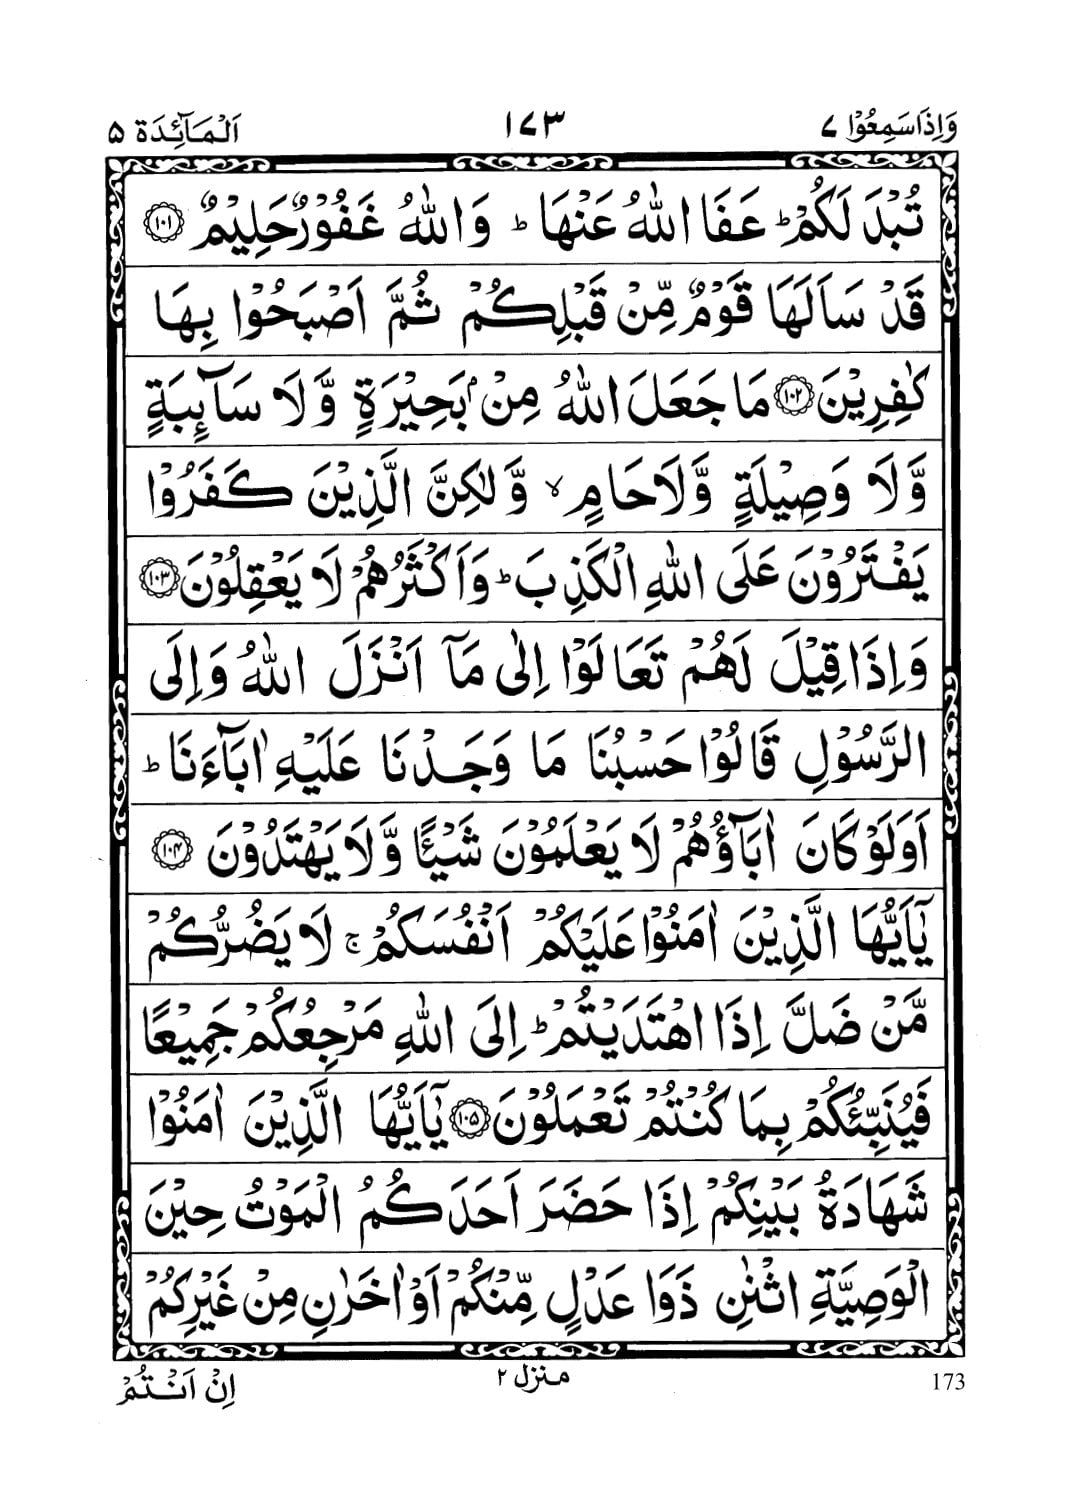 وَاِذَاسَمِعُوْا ۷
۱۷۳
اَلْمَآئِدَة ۵
تُبْدَ لَكُمْ ؕ عَفَا اللّٰهُ عَنْهَا ؕ وَاللّٰهُ غَفُوْرٌ حَلِيْمٌ ۝۱۰۱
قَدْ سَاَلَهَا قَوْمٌ مِّنْ قَبْلِكُمْ ثُمَّ اَصْبَحُوْا بِهَا
كٰفِرِيْنَ ۝۱۰۲ مَا جَعَلَ اللّٰهُ مِنْۢ بَحِيْرَةٍ وَّلَا سَآئِبَةٍ
وَّلَا وَصِيْلَةٍ وَّلَا حَامٍ ۙ وَّلٰكِنَّ الَّذِيْنَ كَفَرُوْا
يَفْتَرُوْنَ عَلَى اللّٰهِ الْكَذِبَ ؕ وَاَكْثَرُهُمْ لَا يَعْقِلُوْنَ ۝۱۰۳
وَاِذَا قِيْلَ لَهُمْ تَعَالَوْا اِلٰى مَآ اَنْزَلَ اللّٰهُ وَاِلَى
الرَّسُوْلِ قَالُوْا حَسْبُنَا مَا وَجَدْنَا عَلَيْهِ اٰبَآءَنَا ؕ
اَوَلَوْ كَانَ اٰبَآؤُهُمْ لَا يَعْلَمُوْنَ شَيْـًٔا وَّلَا يَهْتَدُوْنَ ۝۱۰۴
يٰٓاَيُّهَا الَّذِيْنَ اٰمَنُوْا عَلَيْكُمْ اَنْفُسَكُمْ ۚ لَا يَضُرُّكُمْ
مَّنْ ضَلَّ اِذَا اهْتَدَيْتُمْ ؕ اِلَى اللّٰهِ مَرْجِعُكُمْ جَمِيْعًا
فَيُنَبِّئُكُمْ بِمَا كُنْتُمْ تَعْمَلُوْنَ ۝۱۰۵ يٰٓاَيُّهَا الَّذِيْنَ اٰمَنُوْا
شَهَادَةُ بَيْنِكُمْ اِذَا حَضَرَ اَحَدَكُمُ الْمَوْتُ حِيْنَ
الْوَصِيَّةِ اثْنٰنِ ذَوَا عَدْلٍ مِّنْكُمْ اَوْ اٰخَرٰنِ مِنْ غَيْرِكُمْ
173
منزل ۲
اِنْ اَنْتُمْ